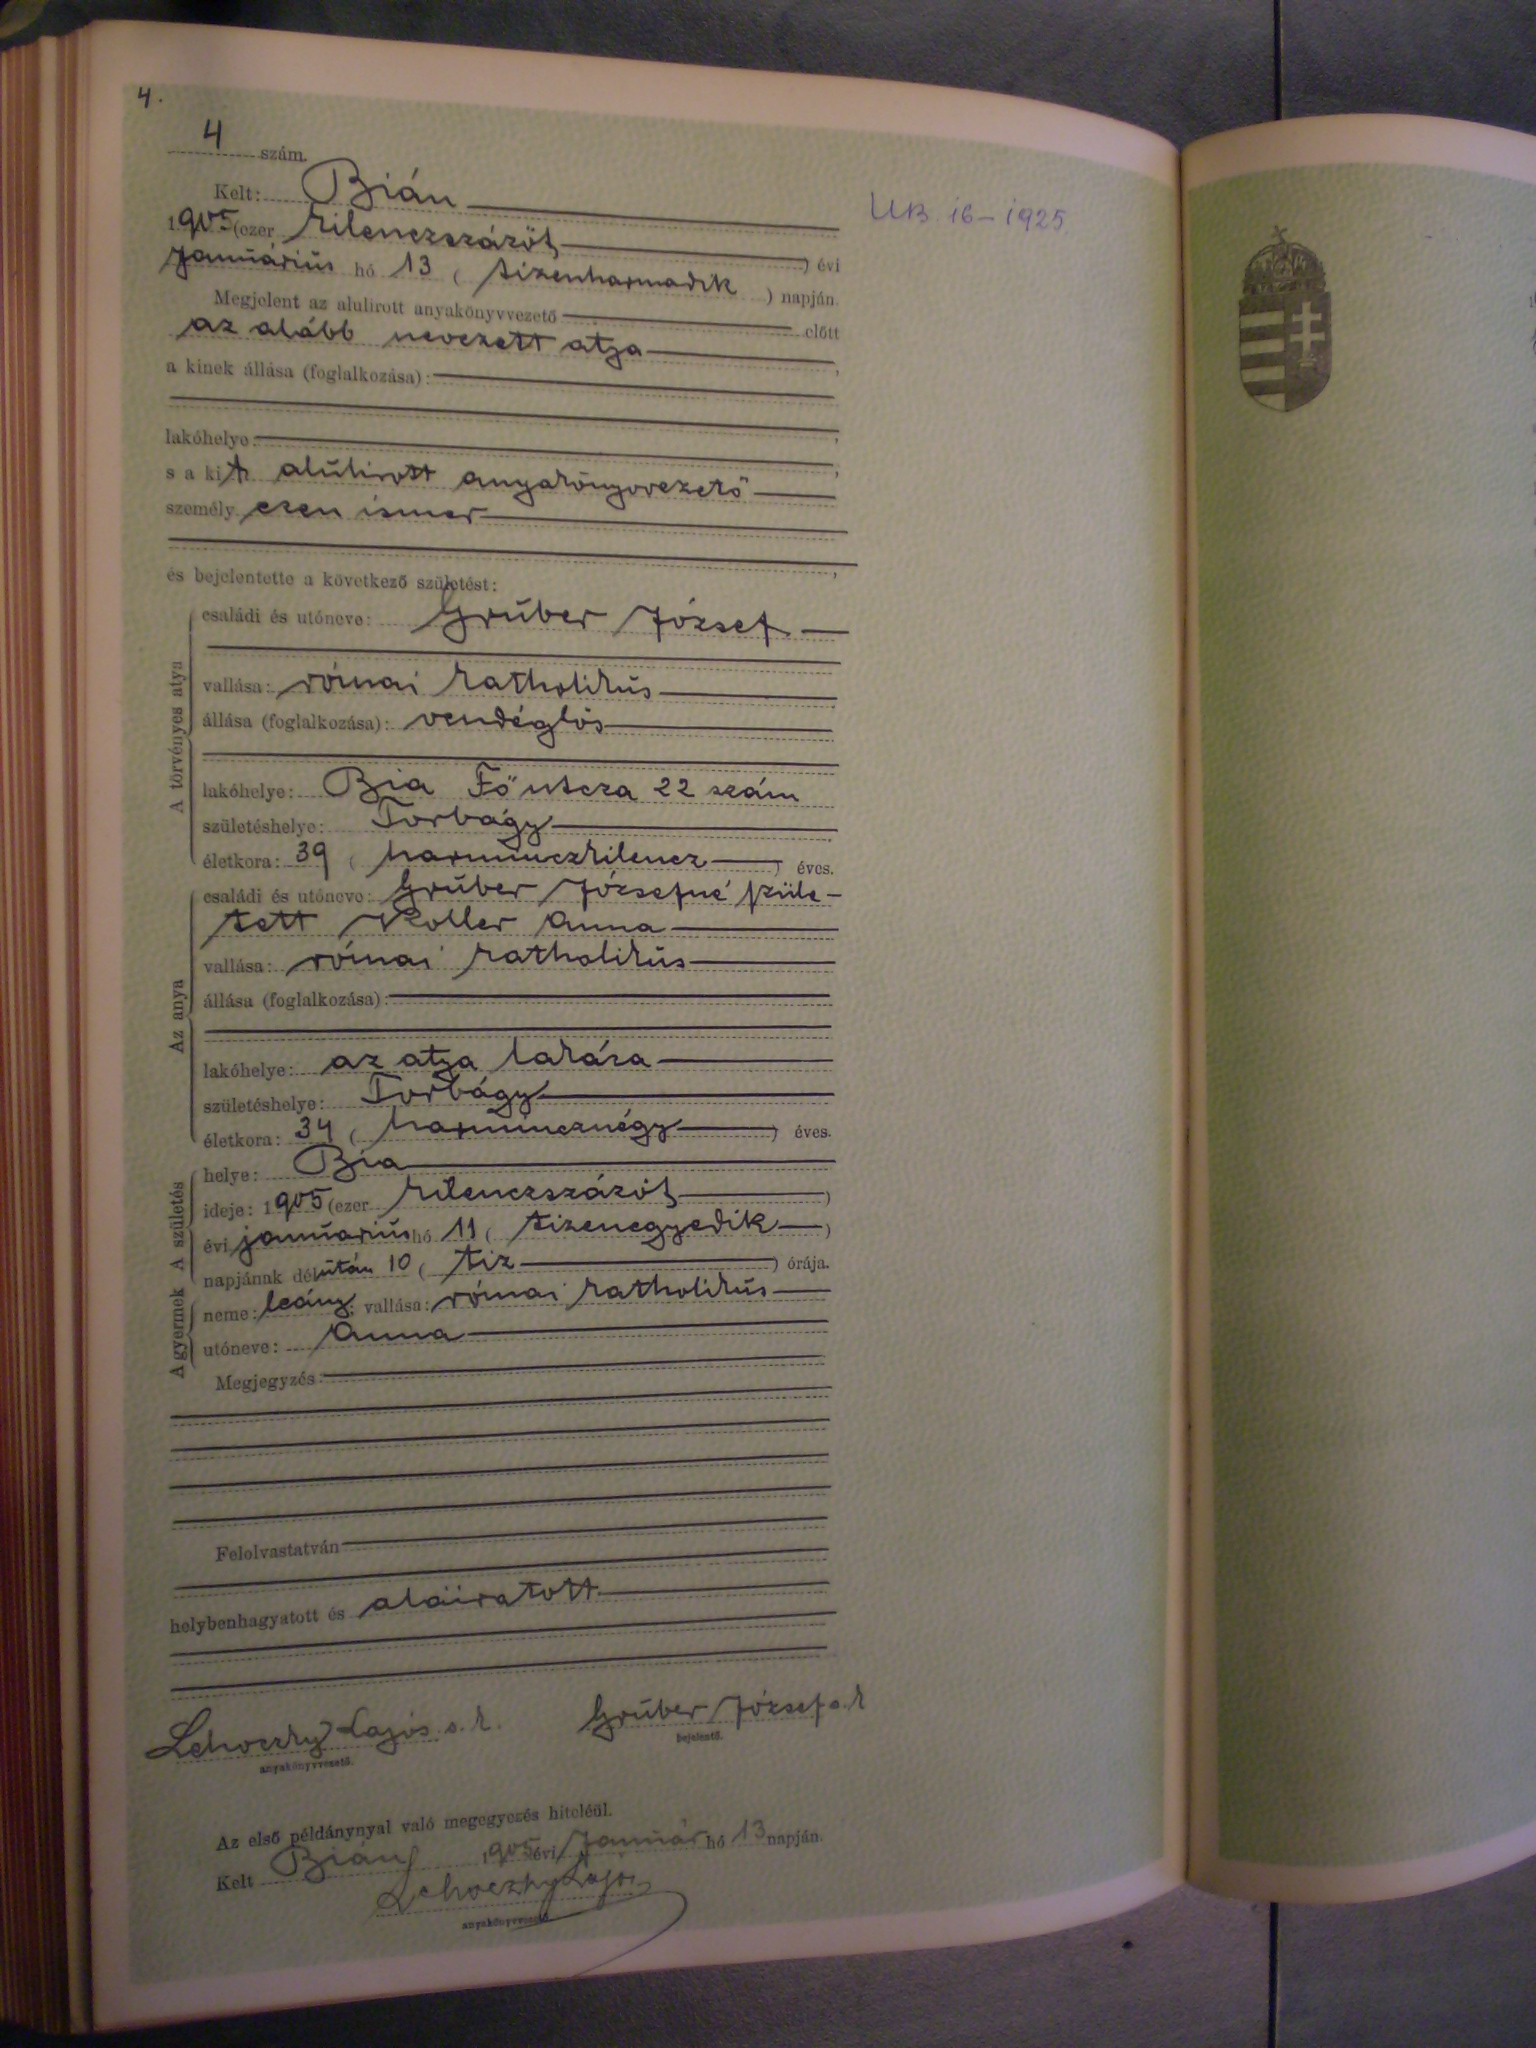 4.
4 szám.
Kelt: Bián
UB 16-1925
1905 (ezer kilenczszázöt) évi
januárius hó 13 (tizenharmadik) napján.
Megjelent az alulirott anyakönyvvezető előtt
az alább nevezett atya,
a kinek állása (foglalkozása):
lakóhelye:
s a kit alúlirott anyakönyvvezető
személyesen ismer
és bejelentette a következő születést:
A törvényes atya
családi és utóneve: Grúber József
vallása: római katholikús
állása (foglalkozása): vendéglős
lakóhelye: Bia Fő utcza 22 szám
születéshelye: Torbágy
életkora: 39 (harminczkilencz) éves.
Az anya
családi és utóneve: Grúber Józsefné szüle-
tett Koller Anna
vallása: római katholikús
állása (foglalkozása):
lakóhelye: az atya lakása
születéshelye: Torbágy
életkora: 34 (harmincznégy) éves.
A születés
helye: Bia
ideje: 1905 (ezer kilenczszázöt)
évi januárius hó 11 (tizenegyedik)
napjának délután 10 (tiz) órája.
A gyermek
neme: leány; vallása: római katholikús
utóneve: Anna
Megjegyzés:
Felolvastatván
helybenhagyatott és aláiratott
Lehoczky Lajos s. k. Grúber József s. k
anyakönyvvezető. bejelentő.
Az első példánynyal való megegyezés hiteléül.
Kelt Bián 1905 évi Január hó 13 napján.
Lehoczky Lajos
anyakönyvvezető.